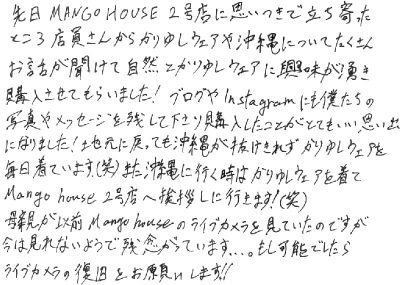 先日 MANGO HOUSE 2号店に思いつきで立ち寄った
ところ店員さんからかりゆしウェアや沖縄についてたくさん
お話が聞けて自然とかりゆしウェアに興味が湧き
購入させてもらいました! ブログやInstagramにも僕たちの
写真やメッセージを残して下さり購入したことがとてもいい思い出
になりました!地元に戻っても沖縄が抜けきれずかりゆしウェアを
毎日着ています(笑)また沖縄に行く時はかりゆしウェアを着て
Mango house 2号店へ挨拶しに行きます!(笑)
母親が以前 Mango houseのライブカメラを見ていたのですが
今は見れないようで残念がっています...。もし可能でしたら
ライブカメラの復旧をお願いします!!